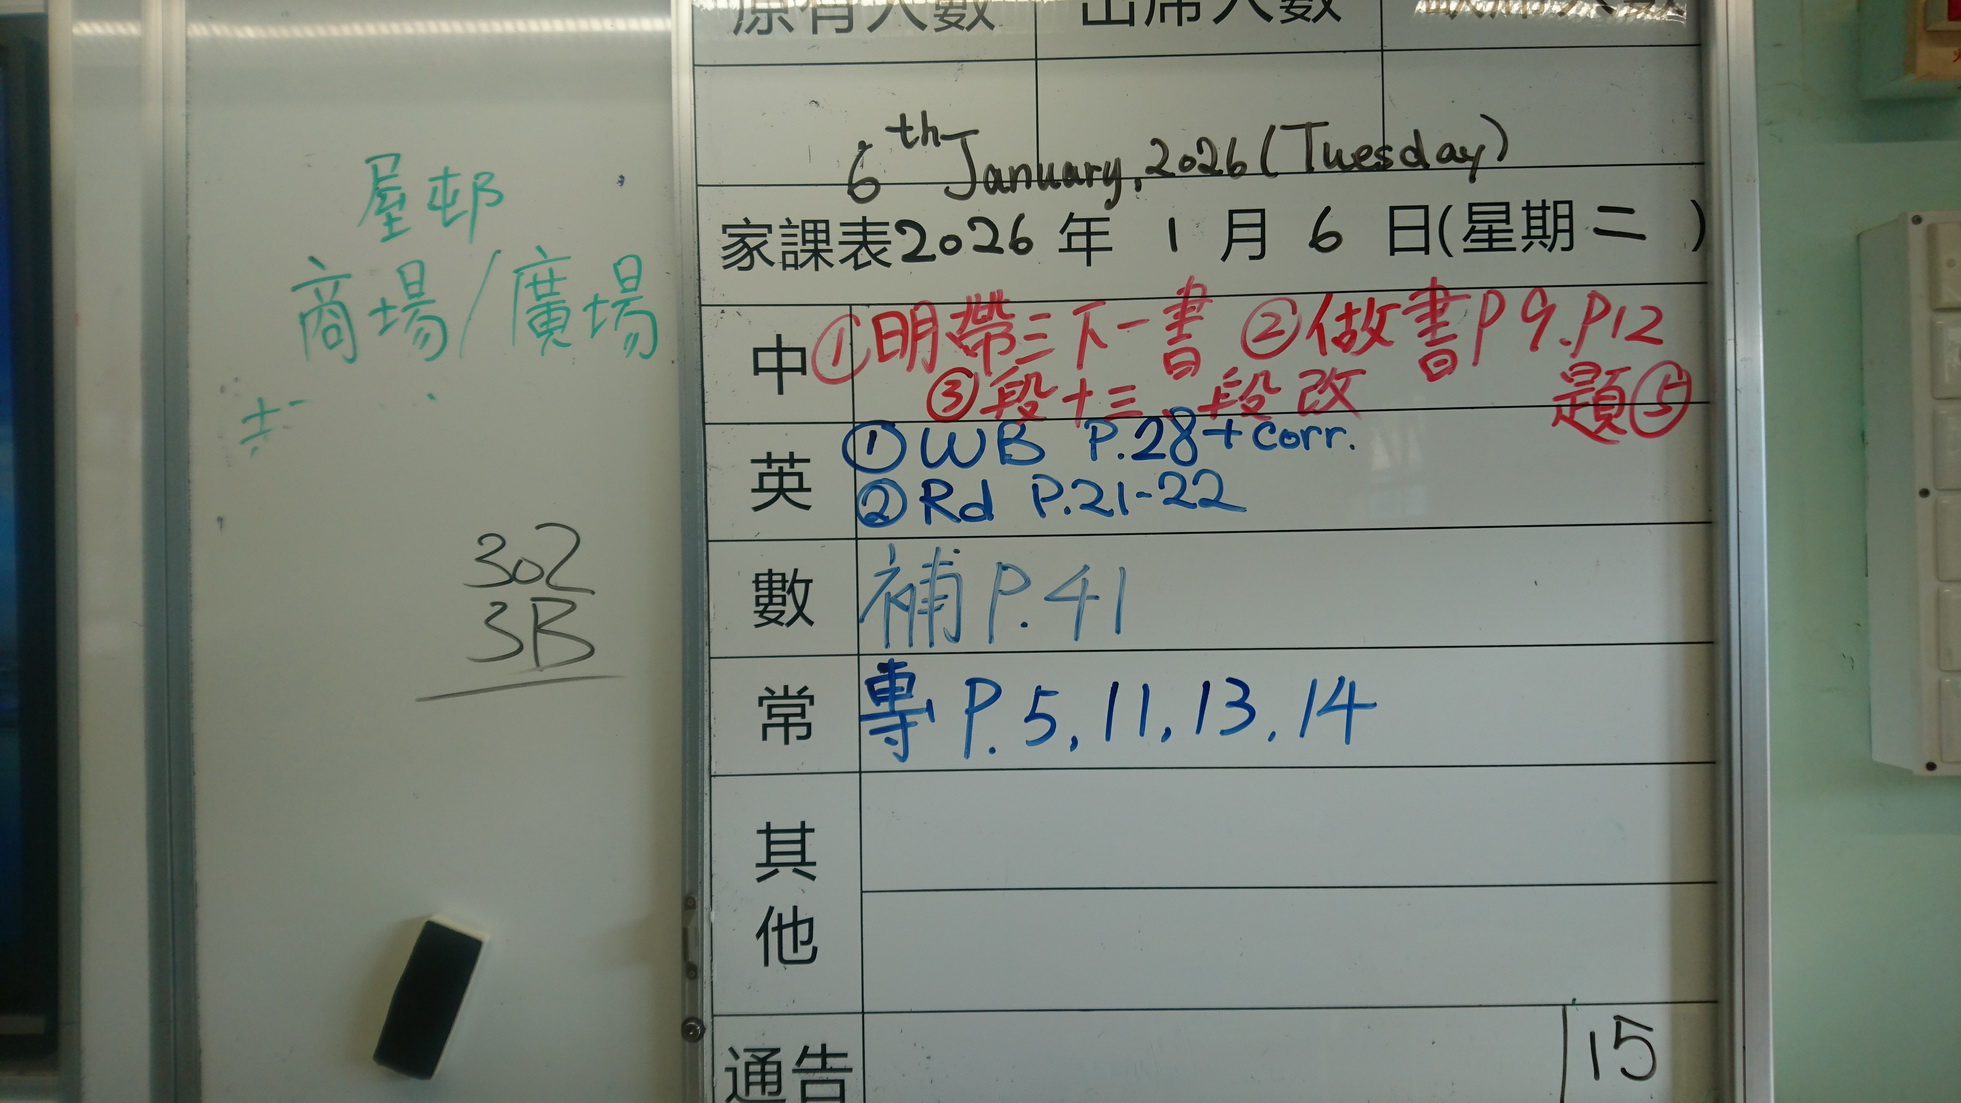 屋邨
商場/廣場
302
3B
原有人數 出席人數
6th January, 2026 (Tuesday)
家課表2026年1月6日(星期二)
中 ①明帶三下一書 ②做書P9.P12
題⑤
③段十三、段改
英 ①WB P.28+corr.
②Rd P.21-22
數 補P.41
常 專P.5,11,13,14
其他
通告 15